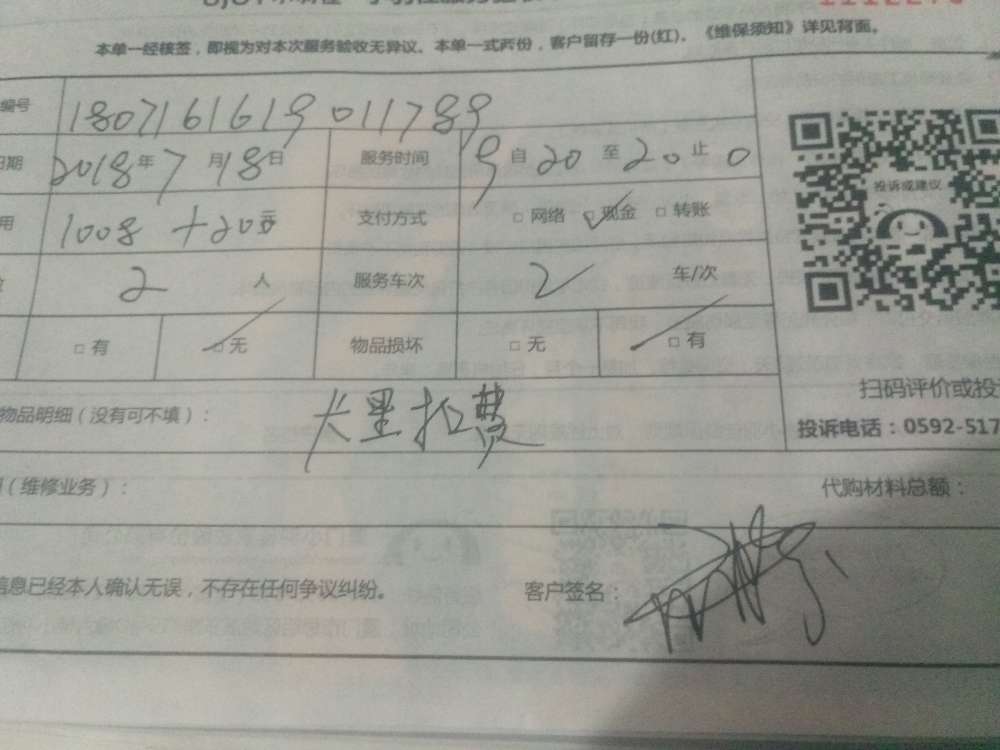 本单一经核签，即视为对本次服务验收无异议。本单一式两份，客户留存一份(红)。《维保须知》详见背面。
编号 1807161619011789
日期 2018年7月18日 服务时间 自20至20止0
用 1008+20 支付方式 □网络 □现金 □转账
2人 服务车次 2车/次
□有 □无 物品损坏 □无 □有
投诉或建议
扫码评价或投
物品明细（没有可不填）：
投诉电话：0592-517
（维修业务）： 代购材料总额：
信息已经本人确认无误，不存在任何争议纠纷。 客户签名：